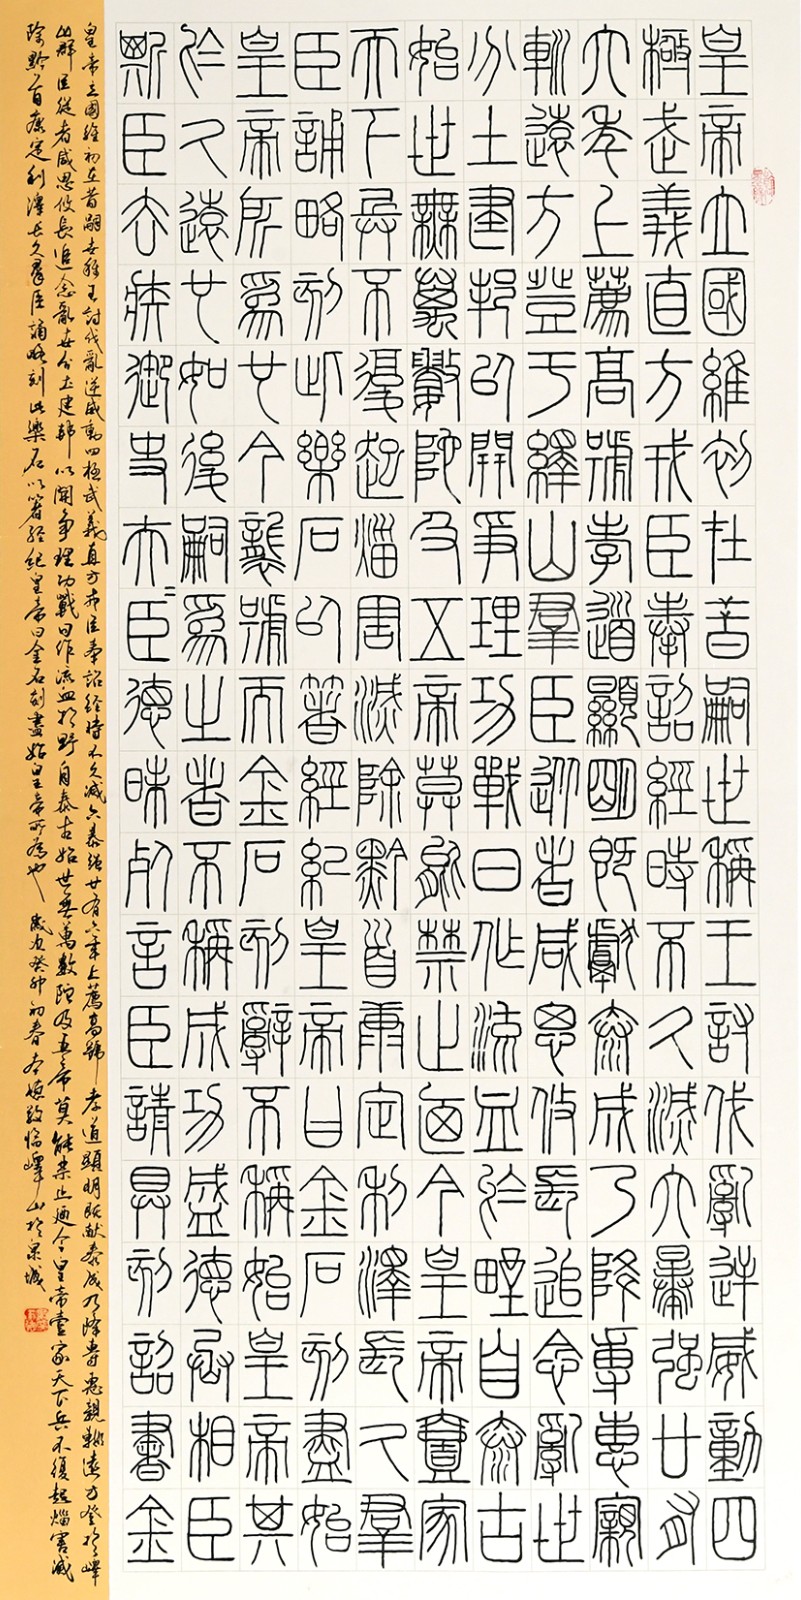 皇帝立國維初在昔嗣世稱王討伐亂逆威動四
極武義直方戎臣奉詔經時不久滅六暴強廿有
六年上薦高號孝道顯明既獻泰成乃降專惠寴
䡅遠方登于繹山羣臣從者咸思攸長追念亂世
分土建邦以開爭理功戰日作流血於野自泰古
始世無萬數陀及五帝莫能禁止廼今皇帝壹家
天下兵不復起災害滅除黔首康定利澤長久羣
臣誦略刻此樂石以著經紀皇帝曰金石刻盡始
皇帝所爲也今襲號而金石刻辭不稱始皇帝其
於久遠也如後嗣爲之者不稱成功盛德丞相臣
斯臣去疾御史夫=臣德昧死言臣請具刻詔書金
皇帝立國維初在昔嗣世稱王討伐亂逆威動四極武義直方戎臣奉詔經時不久滅六暴強廿有六年上薦高號孝道顯明既献泰成乃降專惠親䡅遠方登於嶧
山群臣從者咸思攸長追念亂世分土建邦以開爭理功戰日作流血於野自泰古始世無萬數陀及五帝莫能禁止廼今皇帝壹家天下兵不復起災害滅
除黔首康定利澤長久群臣誦略刻此樂石以著經紀皇帝曰金石刻盡始皇帝所為也 歲次癸卯初春 敬臨嶧山於泉城